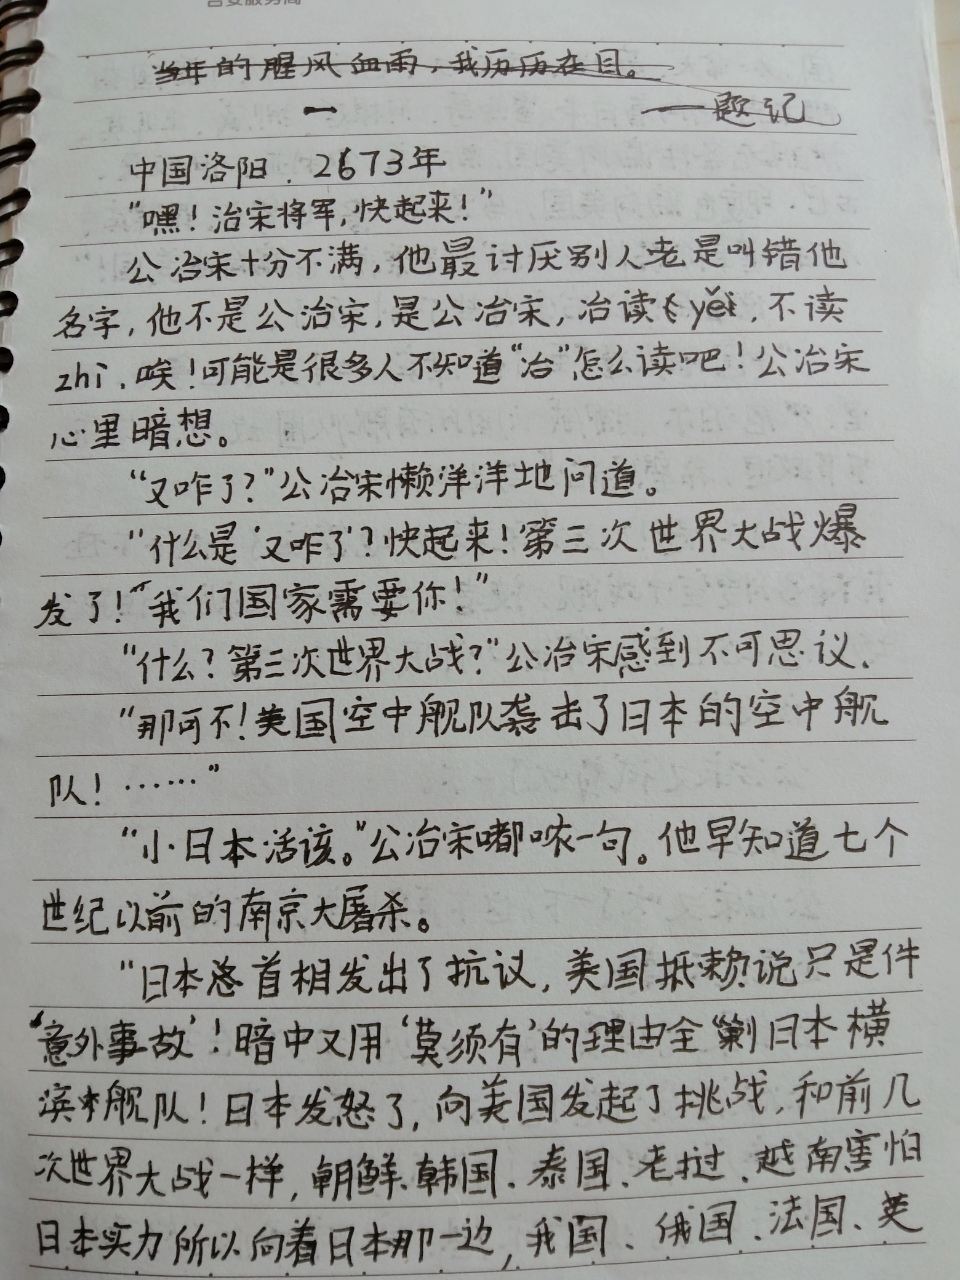 当年的腥风血雨，我历历在目。
一 ——题记
中国洛阳．2673年
“嘿！治宋将军，快起来！”
公冶宋十分不满，他最讨厌别人老是叫错他
名字，他不是公治宋，是公冶宋，冶读yě，不读
zhì．唉！可能是很多人不知道“冶”怎么读吧！公冶宋
心里暗想。
“又咋了？”公冶宋懒洋洋地问道。
“什么是‘又咋了’？快起来！第三次世界大战爆
发了！”“我们国家需要你！”
“什么？第三次世界大战？”公冶宋感到不可思议．
“那可不！美国空中舰队袭击了日本的空中舰
队！……”
“小日本活该。”公冶宋嘟哝一句。他早知道七个
世纪以前的南京大屠杀。
“日本总首相发出了抗议，美国抵赖说只是件
‘意外事故’！暗中又用‘莫须有’的理由全剿日本横
滨舰队！日本发怒了，向美国发起了挑战，和前几
次世界大战一样，朝鲜、韩国、泰国、老挝、越南害怕
日本实力所以向着日本那一边，我国、俄国、法国、英